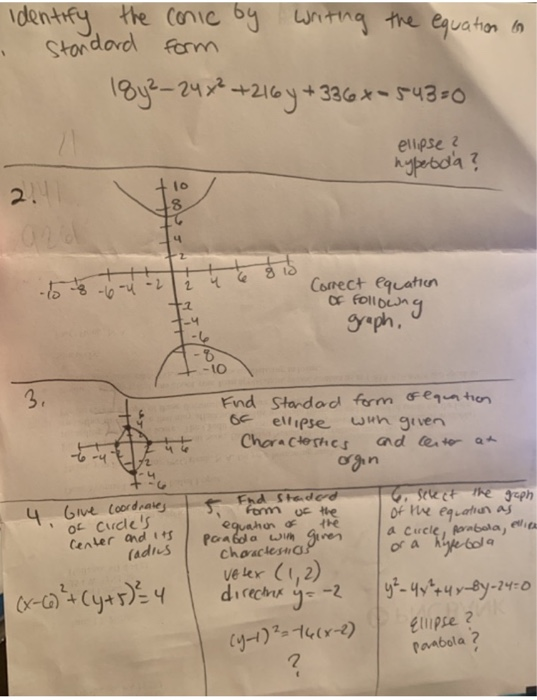 Identify the conic by writing the equation in
standard form
18y² - 24x² + 216y + 336x - 543 = 0
ellipse ?
hyperbola ?
2.
10
8
6
4
2
-10 -8 -6 -4 -2 2 4 6 8 10
-2
-4
-6
-8
-10
Correct equation
of following
graph.
3.
-6 -4 -2 4 6
-2
-4
-6
Find standard form of equation
of ellipse with given
Characteristics and center at
orgin
4. Give coordinates
of circle's
center and its
radius
(x-6)²+(y+5)²=4
5. Find standard
form of the
equation of the
parabola with given
characteristics
vetex (1,2)
directrix y= -2
(y-1)²=-16(x-2)
?
6. Select the graph
of the equation as
a circle, parabola, ellipse
or a hyperbola
y²-4x²+4x-8y-24=0
Ellipse ?
parabola ?